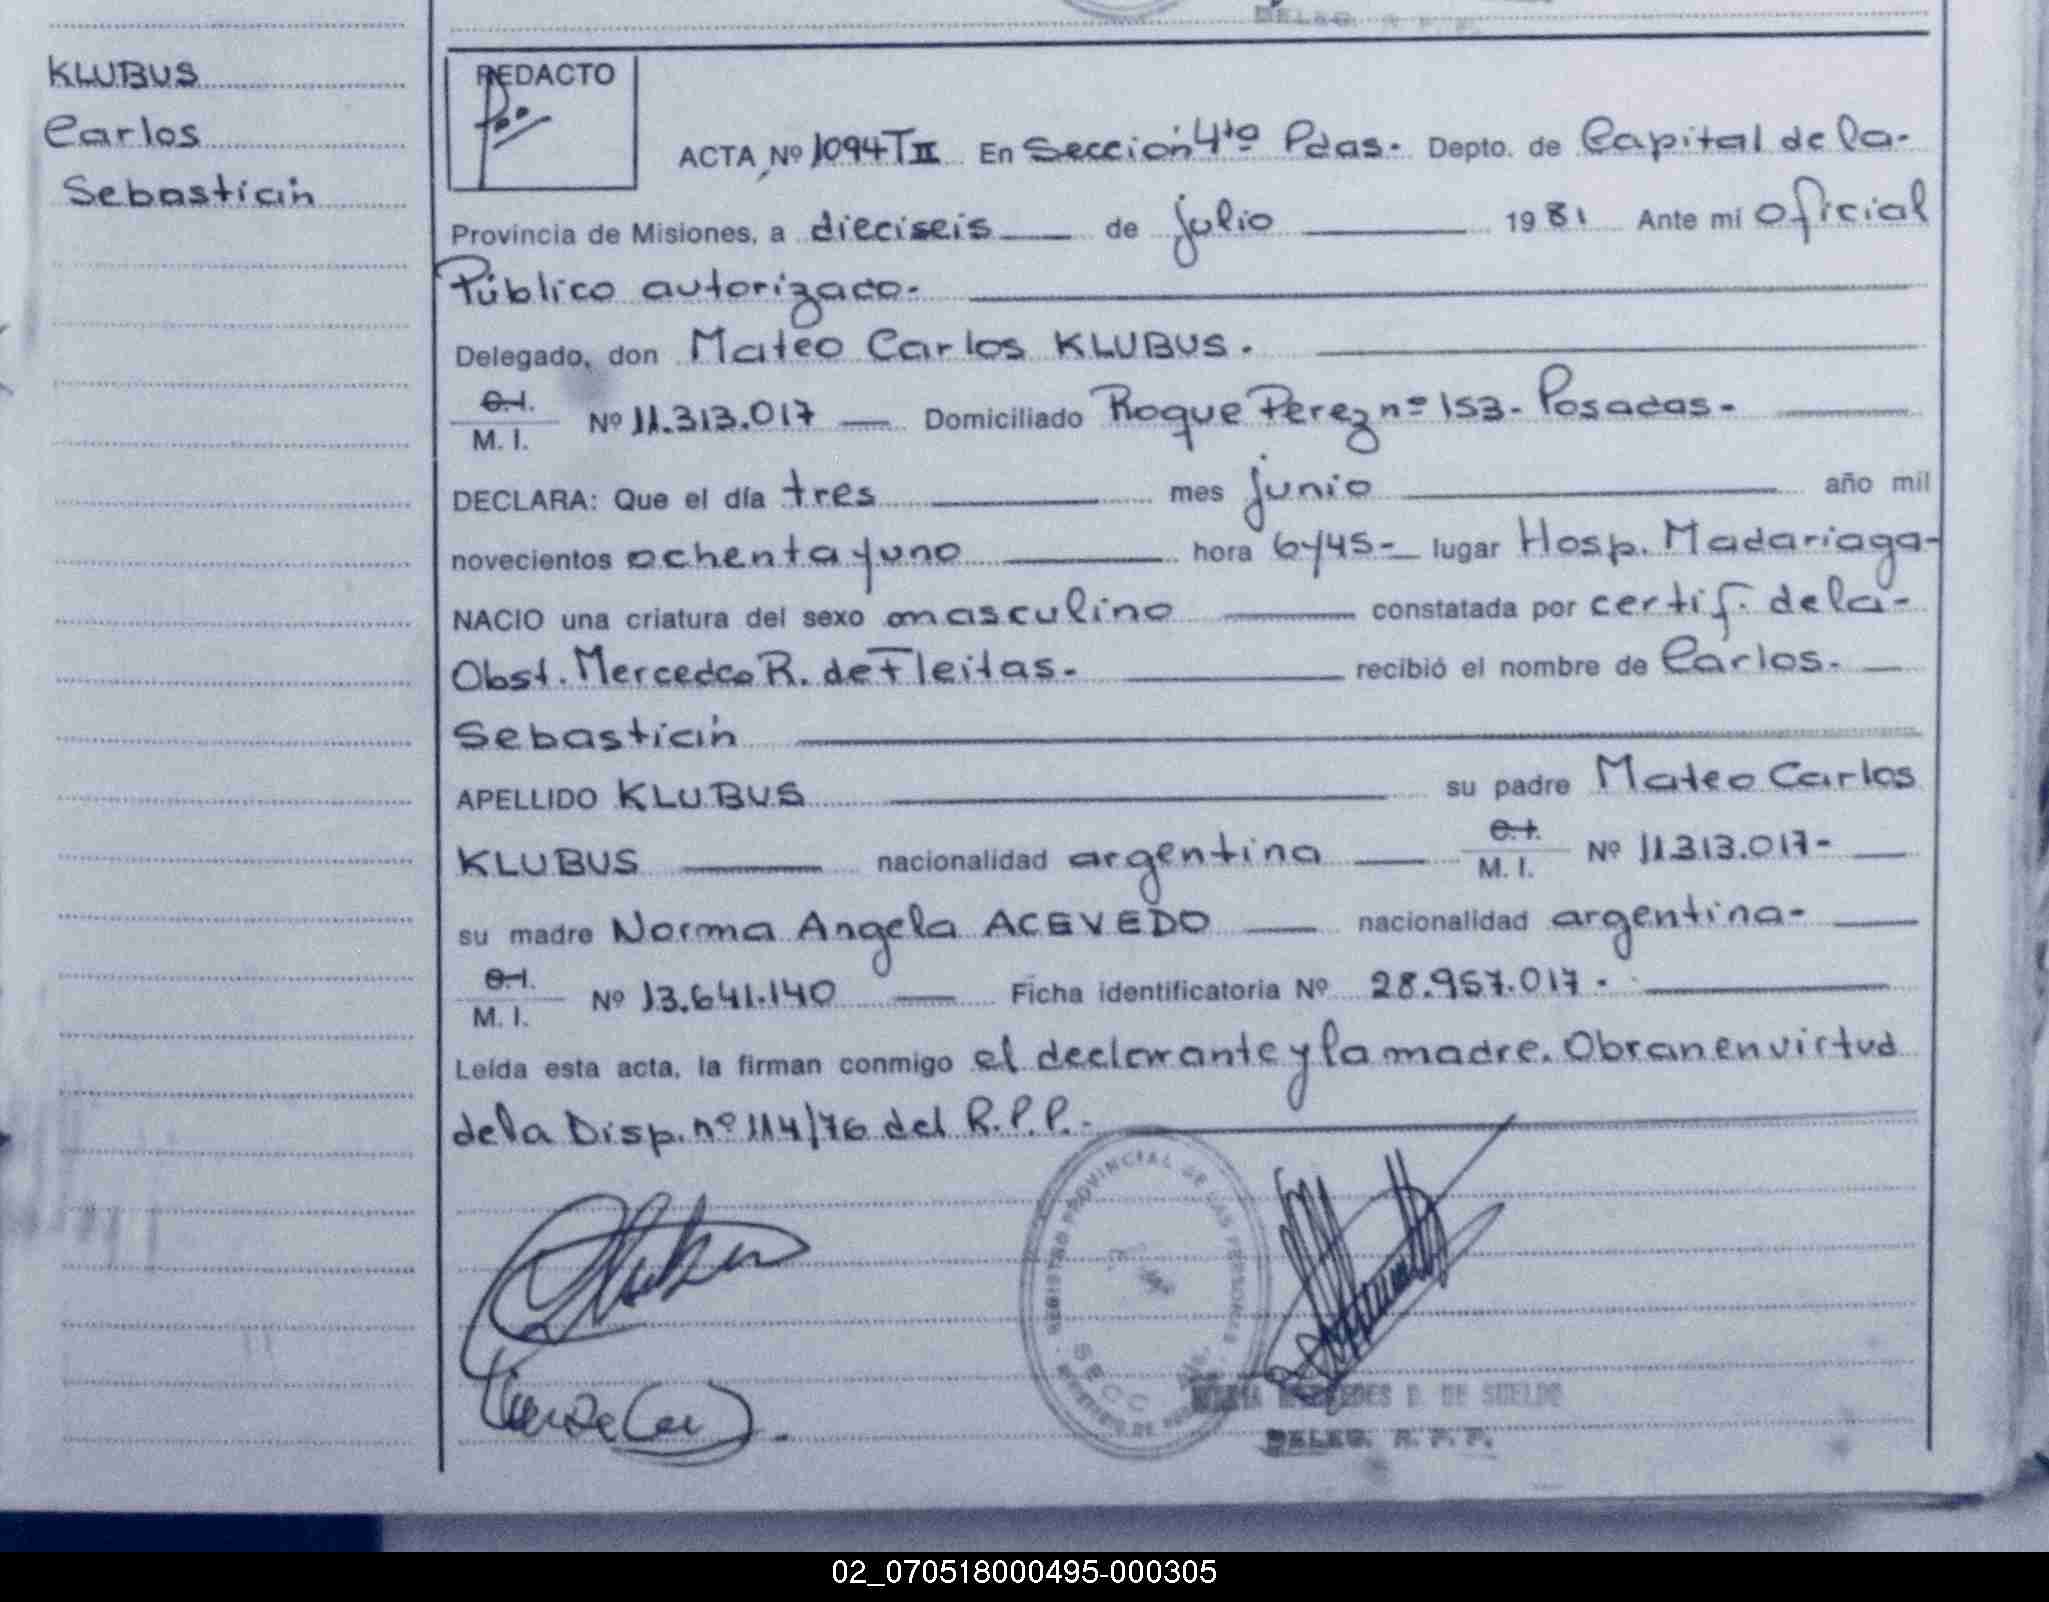 DELEG. R. P. P.
KLUBUS
Carlos
Sebastián
REDACTO
ACTA Nº 1094 T II En Sección 4ta Pdas. Depto. de Capital de la-
Provincia de Misiones, a dieciseis de julio 1981 Ante mí oficial
Público autorizado.
Delegado, don Mateo Carlos KLUBUS.
C.I. M. I. Nº 11.313.017 Domiciliado Roque Perez nº 153- Posadas-
DECLARA: Que el día tres mes junio año mil
novecientos ochenta y uno hora 6y45- lugar Hosp. Madariaga-
NACIO una criatura del sexo masculino constatada por certif. de la-
Obst. Mercedes R. de Fleitas- recibió el nombre de Carlos-
Sebastián
APELLIDO KLUBUS su padre Mateo Carlos
KLUBUS nacionalidad argentina C.I. M. I. Nº 11.313.017-
su madre Norma Angela ACEVEDO nacionalidad argentina-
C.I. M. I. Nº 13.641.140 Ficha identificatoria Nº 28.957.017-
Leída esta acta, la firman conmigo el declarante y la madre. Obran en virtud
de la Disp. nº 114/76 del R.P.P.-
REGISTRO PROVINCIAL DE LAS PERSONAS
SECC
MERCEDES D. DE SUELDO
DELEG. R. P. P.
02_070518000495-000305